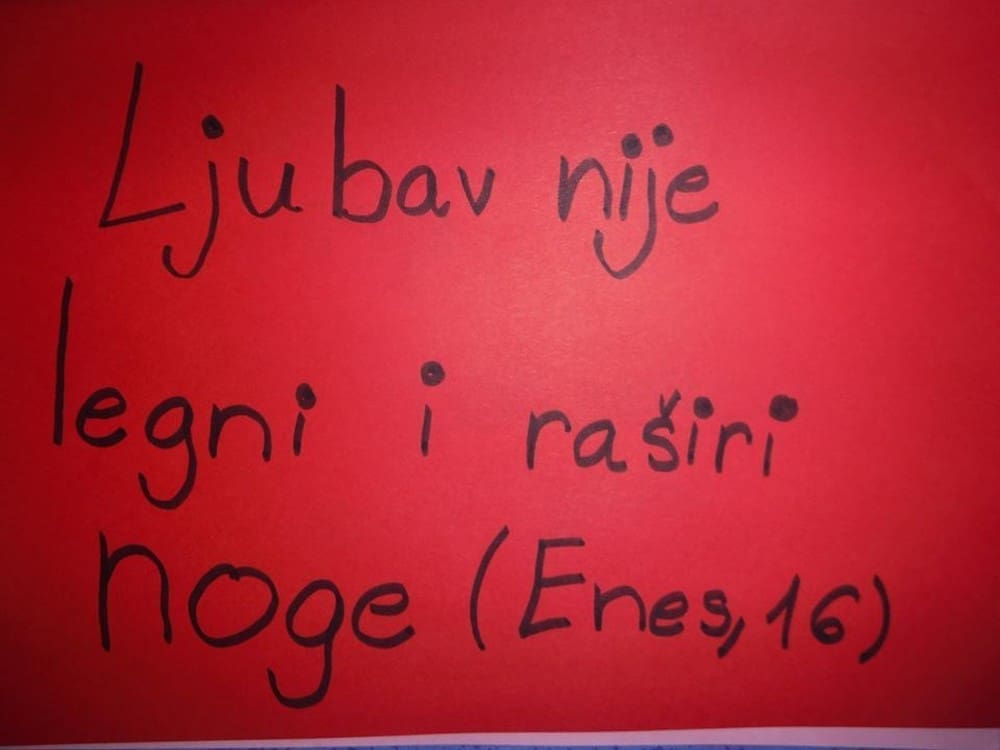 Ljubav nije
legni i raširi
noge (Enes, 16)